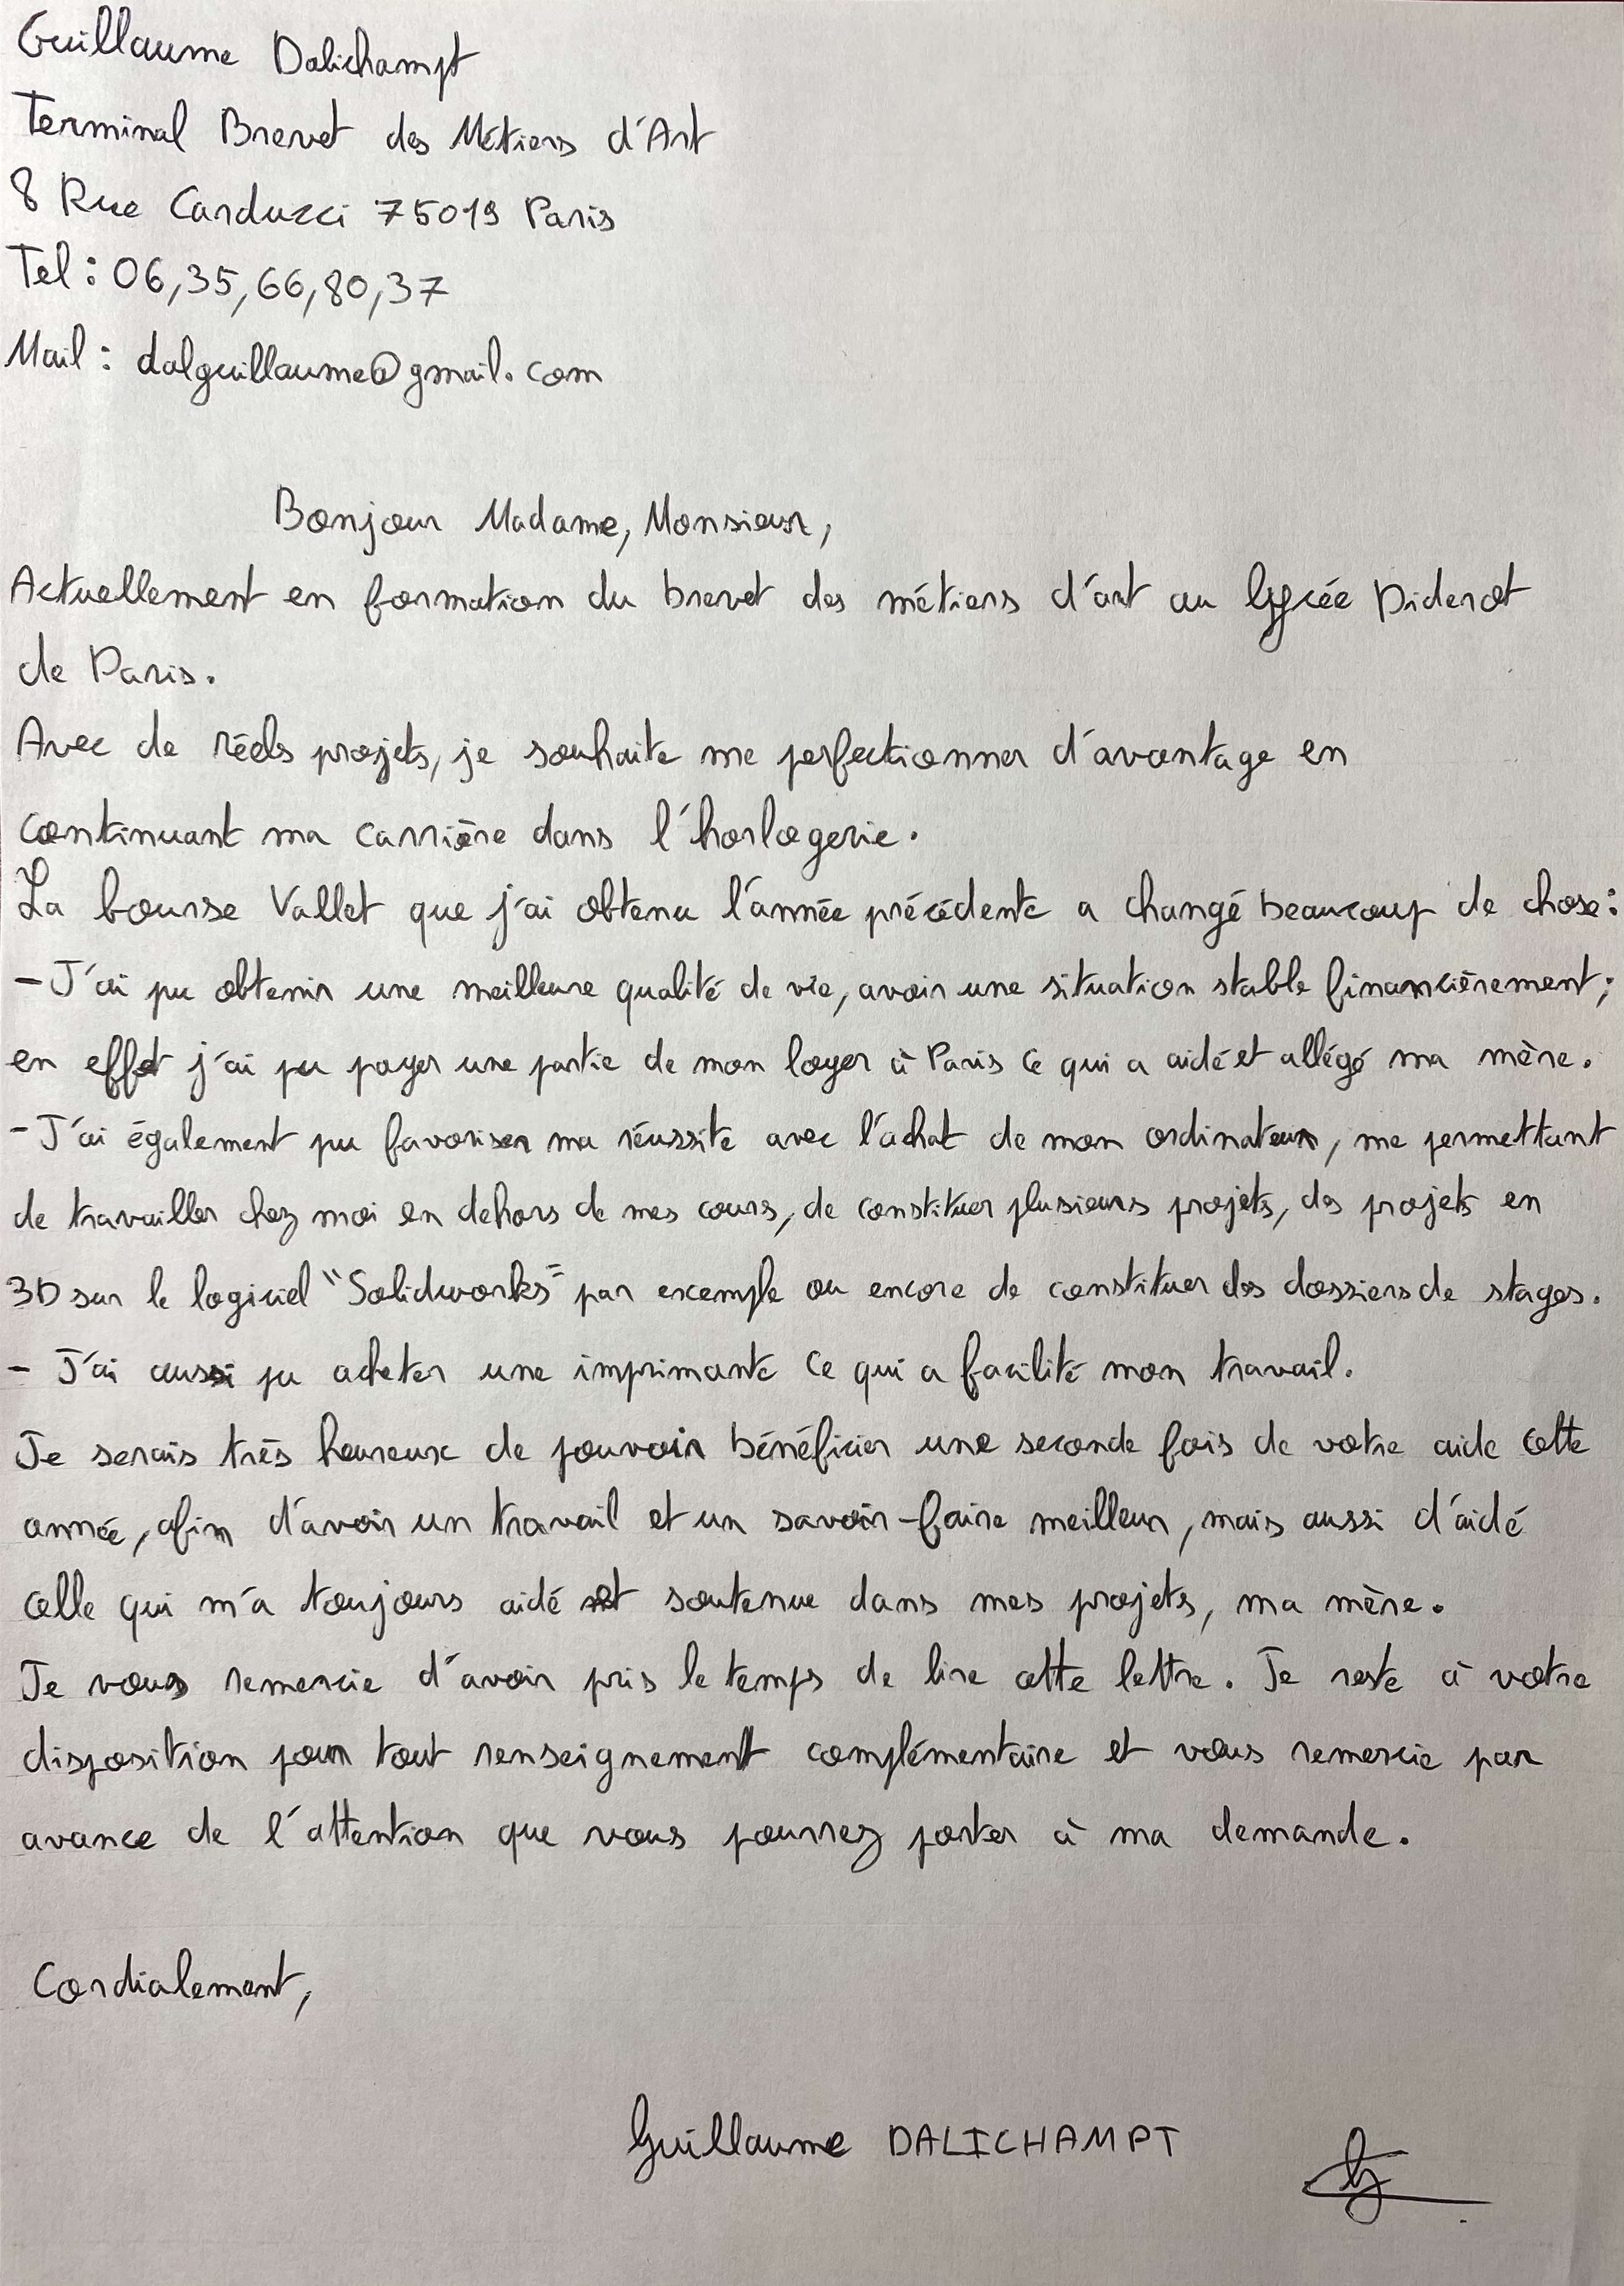 Guillaume Dalichampt
Terminal Brevet des Métiers d'Art
8 Rue Carduzzi 75019 Paris
Tel : 06,35,66,80,37
Mail : dalguillaume@gmail.com
Bonjour Madame, Monsieur,
Actuellement en formation du brevet des métiers d'art au lycée Diderot
de Paris.
Avec de réels projets, je souhaite me perfectionner d'avantage en
continuant ma carrière dans l'horlogerie.
La bourse Vallet que j'ai obtenu l'année précédente a changé beaucoup de chose :
- J'ai pu obtenir une meilleure qualité de vie, avoir une situation stable financièrement ;
en effet j'ai pu payer une partie de mon loyer à Paris ce qui a aidé et allégé ma mère.
- J'ai également pu favoriser ma réussite avec l'achat de mon ordinateur, me permettant
de travailler chez moi en dehors de mes cours, de constituer plusieurs projets, des projets en
3D sur le logiciel "Solidworks" par exemple ou encore de constituer des dossiers de stages.
- J'ai aussi pu acheter une imprimante ce qui a facilité mon travail.
Je serais très heureux de pouvoir bénéficier une seconde fois de votre aide cette
année, afin d'avoir un travail et un savoir-faire meilleur, mais aussi d'aidé
celle qui m'a toujours aidé et soutenue dans mes projets, ma mère.
Je vous remercie d'avoir pris le temps de lire cette lettre. Je reste à votre
disposition pour tout renseignement complémentaire et vous remercie par
avance de l'attention que vous pourrez porter à ma demande.
Cordialement,
Guillaume DALICHAMPT